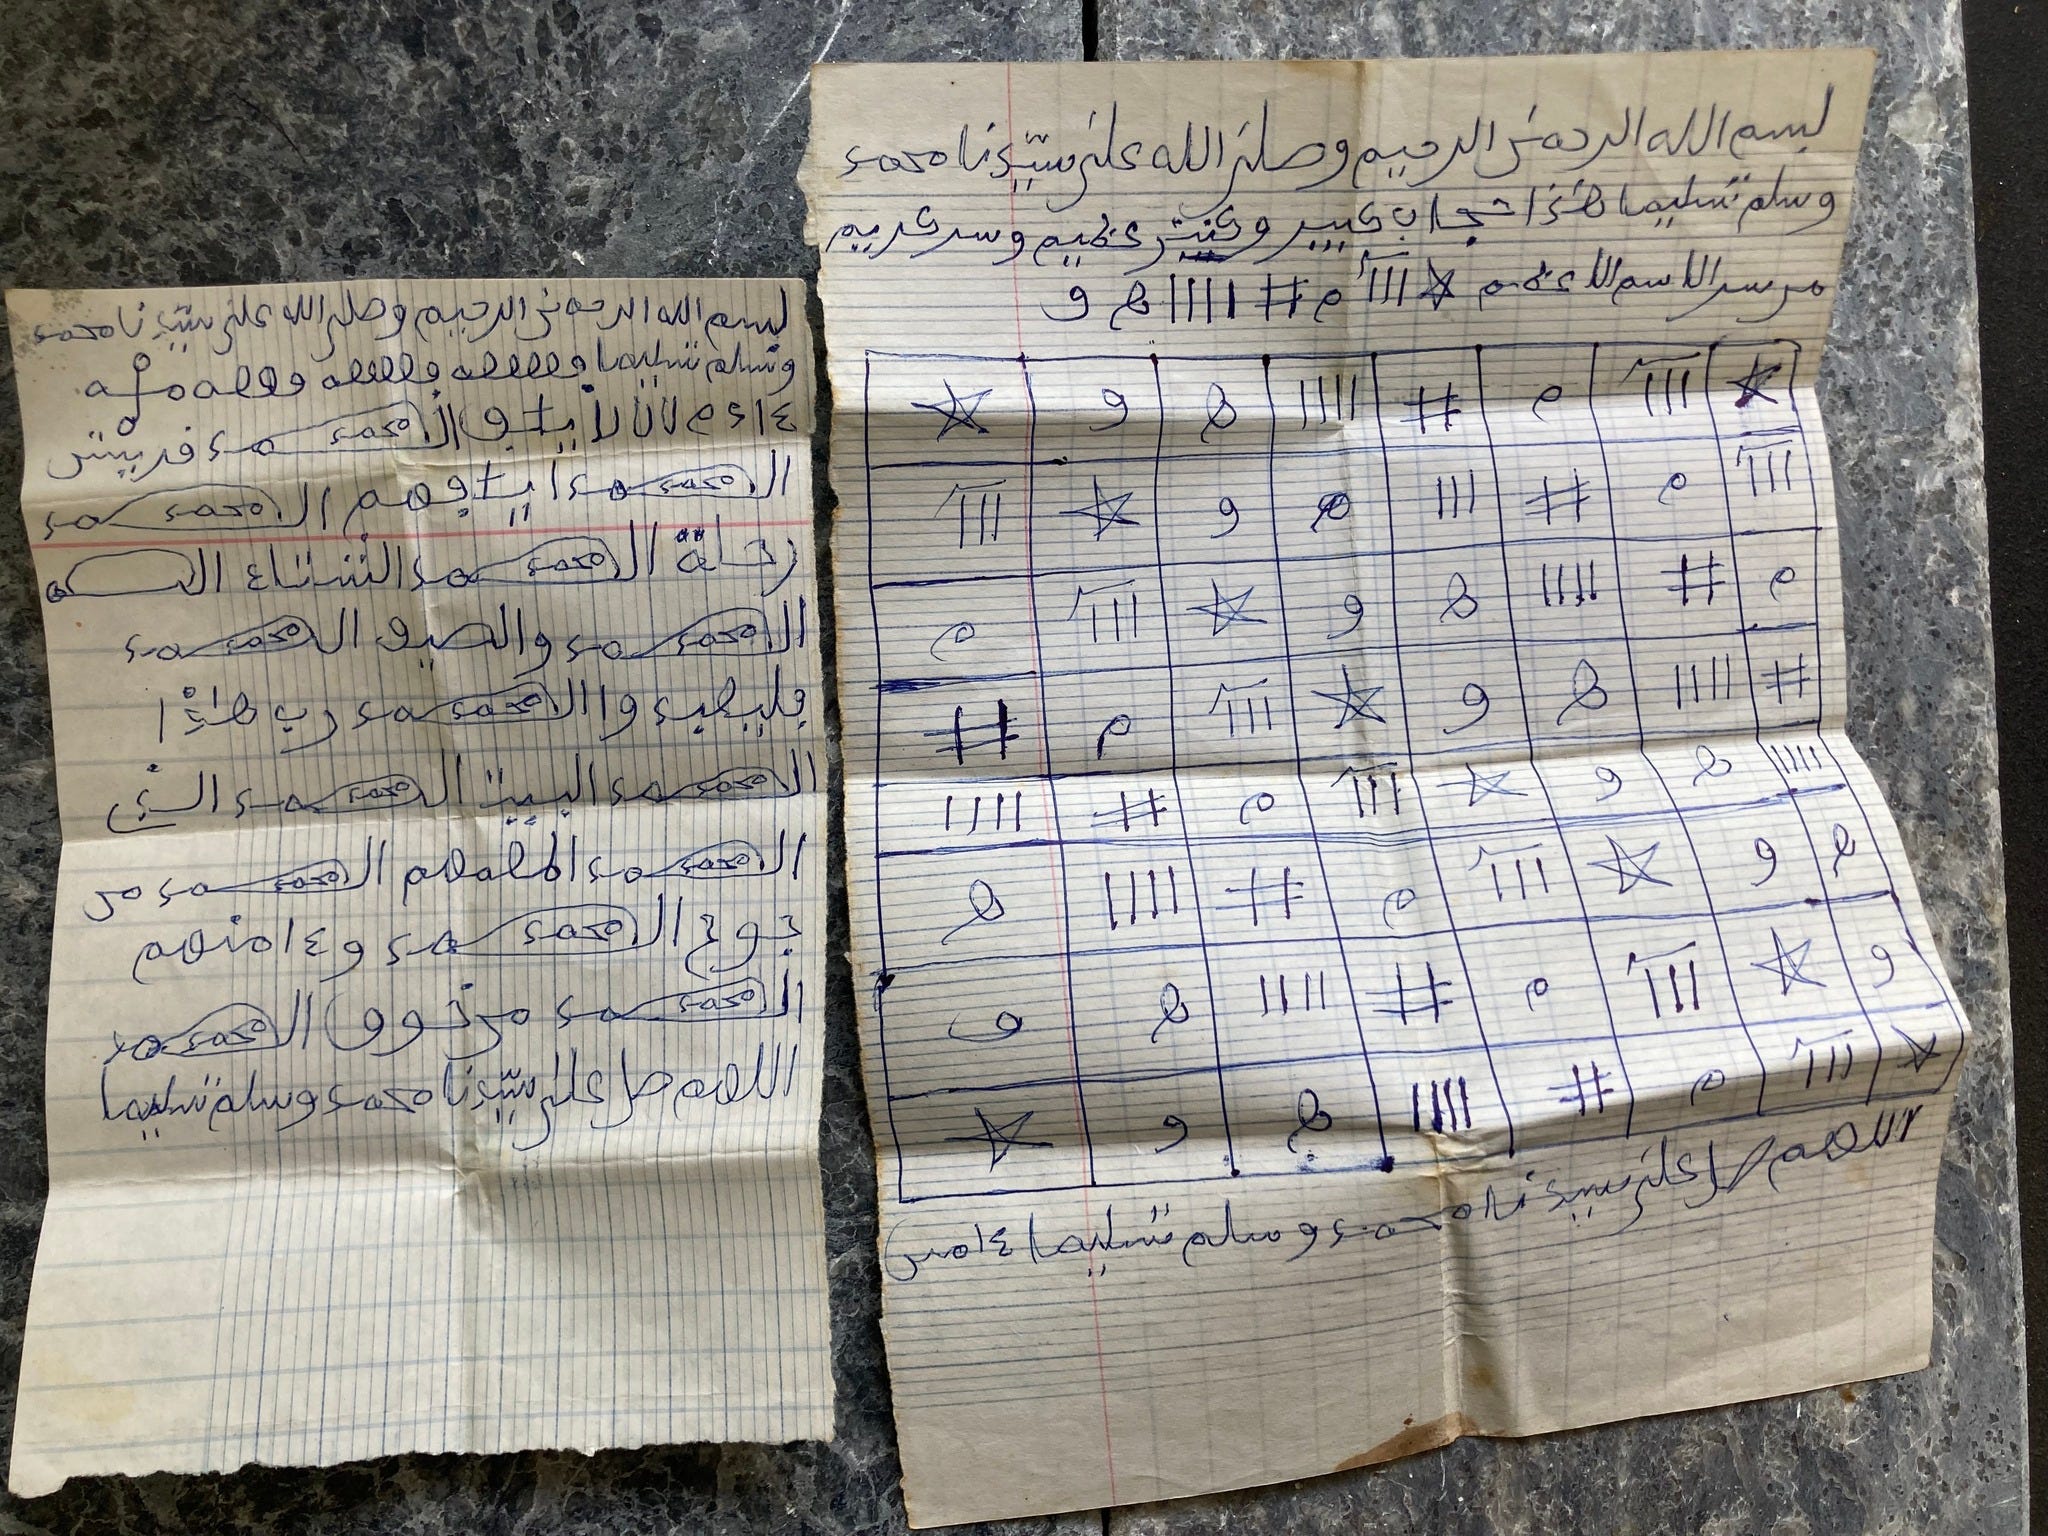 بسم الله الرحمن الرحيم وصلى الله على سيدنا محمد
وسلم تسليما هذا حجاب كبير وكنز عظيم وسر كريم
من سر الاسم الاعظم ☆ ااا م # اااا ه و
☆ ااا م # اااا ه و ☆
ااا م # ااا ه و ☆ ااا
م # اااا ه و ☆ ااا م
# اااا ه و ☆ ااا م #
اااا ه و ☆ ااا م # اااا
ه و ☆ ااا م # اااا ه
و ☆ ااا م # اااا ه و
☆ ااا م # اااا ه و ☆
اللهم صل على سيدنا محمد وسلم تسليما ءامين
بسم الله الرحمن الرحيم وصلى الله على سيدنا محمد
وسلم تسليما
لايلف المحمد قريش
المحمد ايلفهم المحمد
رحلة المحمد الشتاء
المحمد والصيف المحمد
فليعبدوا المحمد رب هذا
المحمد البيت المحمد الذي
المحمد اطعمهم المحمد من
جوع المحمد وءامنهم
المحمد من خوف المحمد
اللهم صل على سيدنا محمد وسلم تسليما